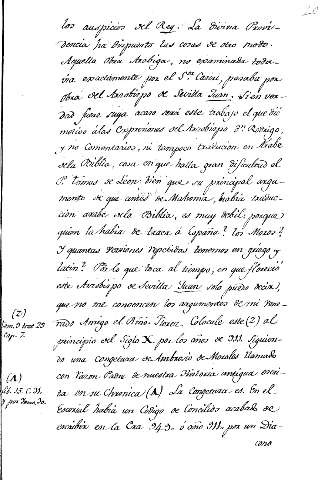 los auspicios del Rey. La divina Provi-
dencia ha dispuesto las cosas de otro modo.
Aquella Obra Arabiga, no examinada toda-
via exactamente por el S.r Casiri, pasaba por
obra del Arzobispo de Sevilla Juan. Si en ver-
dad fuese suya acaso será este trabajo el que dió
motivo á las Expresiones del Arzobispo D.n Rodrigo,
y no Comentarios, ni tampoco traduccion en Arabe
de la Biblia, cosa en que halla gran dificultad el
P. Tomas de Leon. Bien que su principal argu-
mento de que antes de Mahoma, habia traduc-
cion arabe de la Biblia, es muy debil; porque
quien la habia de traer à España? los Moros?
Y quantas versiones repetidas tenemos en griego y
latin? Por lo que toca al tiempo, en que floreció
este Arzobispo de Sevilla Juan solo puedo decir,
que no me convencen los argumentos de mi vene-
rado Amigo el Rmo. Florez. Colocale este (2) al
principio del Siglo X. por los años de 911. siguien-
do una congetura de Ambrosio de Morales llamado
con razon Padre de nuestra Historia antigua escri-
ta en su Chronica (A) La Congetura es. En el
Escorial habia un Codigo de Concilios acabado de
escribir en la Era 949. ó año 911. por un Dia-
cono
(2)
tom. 9 trat. 29
Cap. 7.
(A)
lib. 15. C. 31.